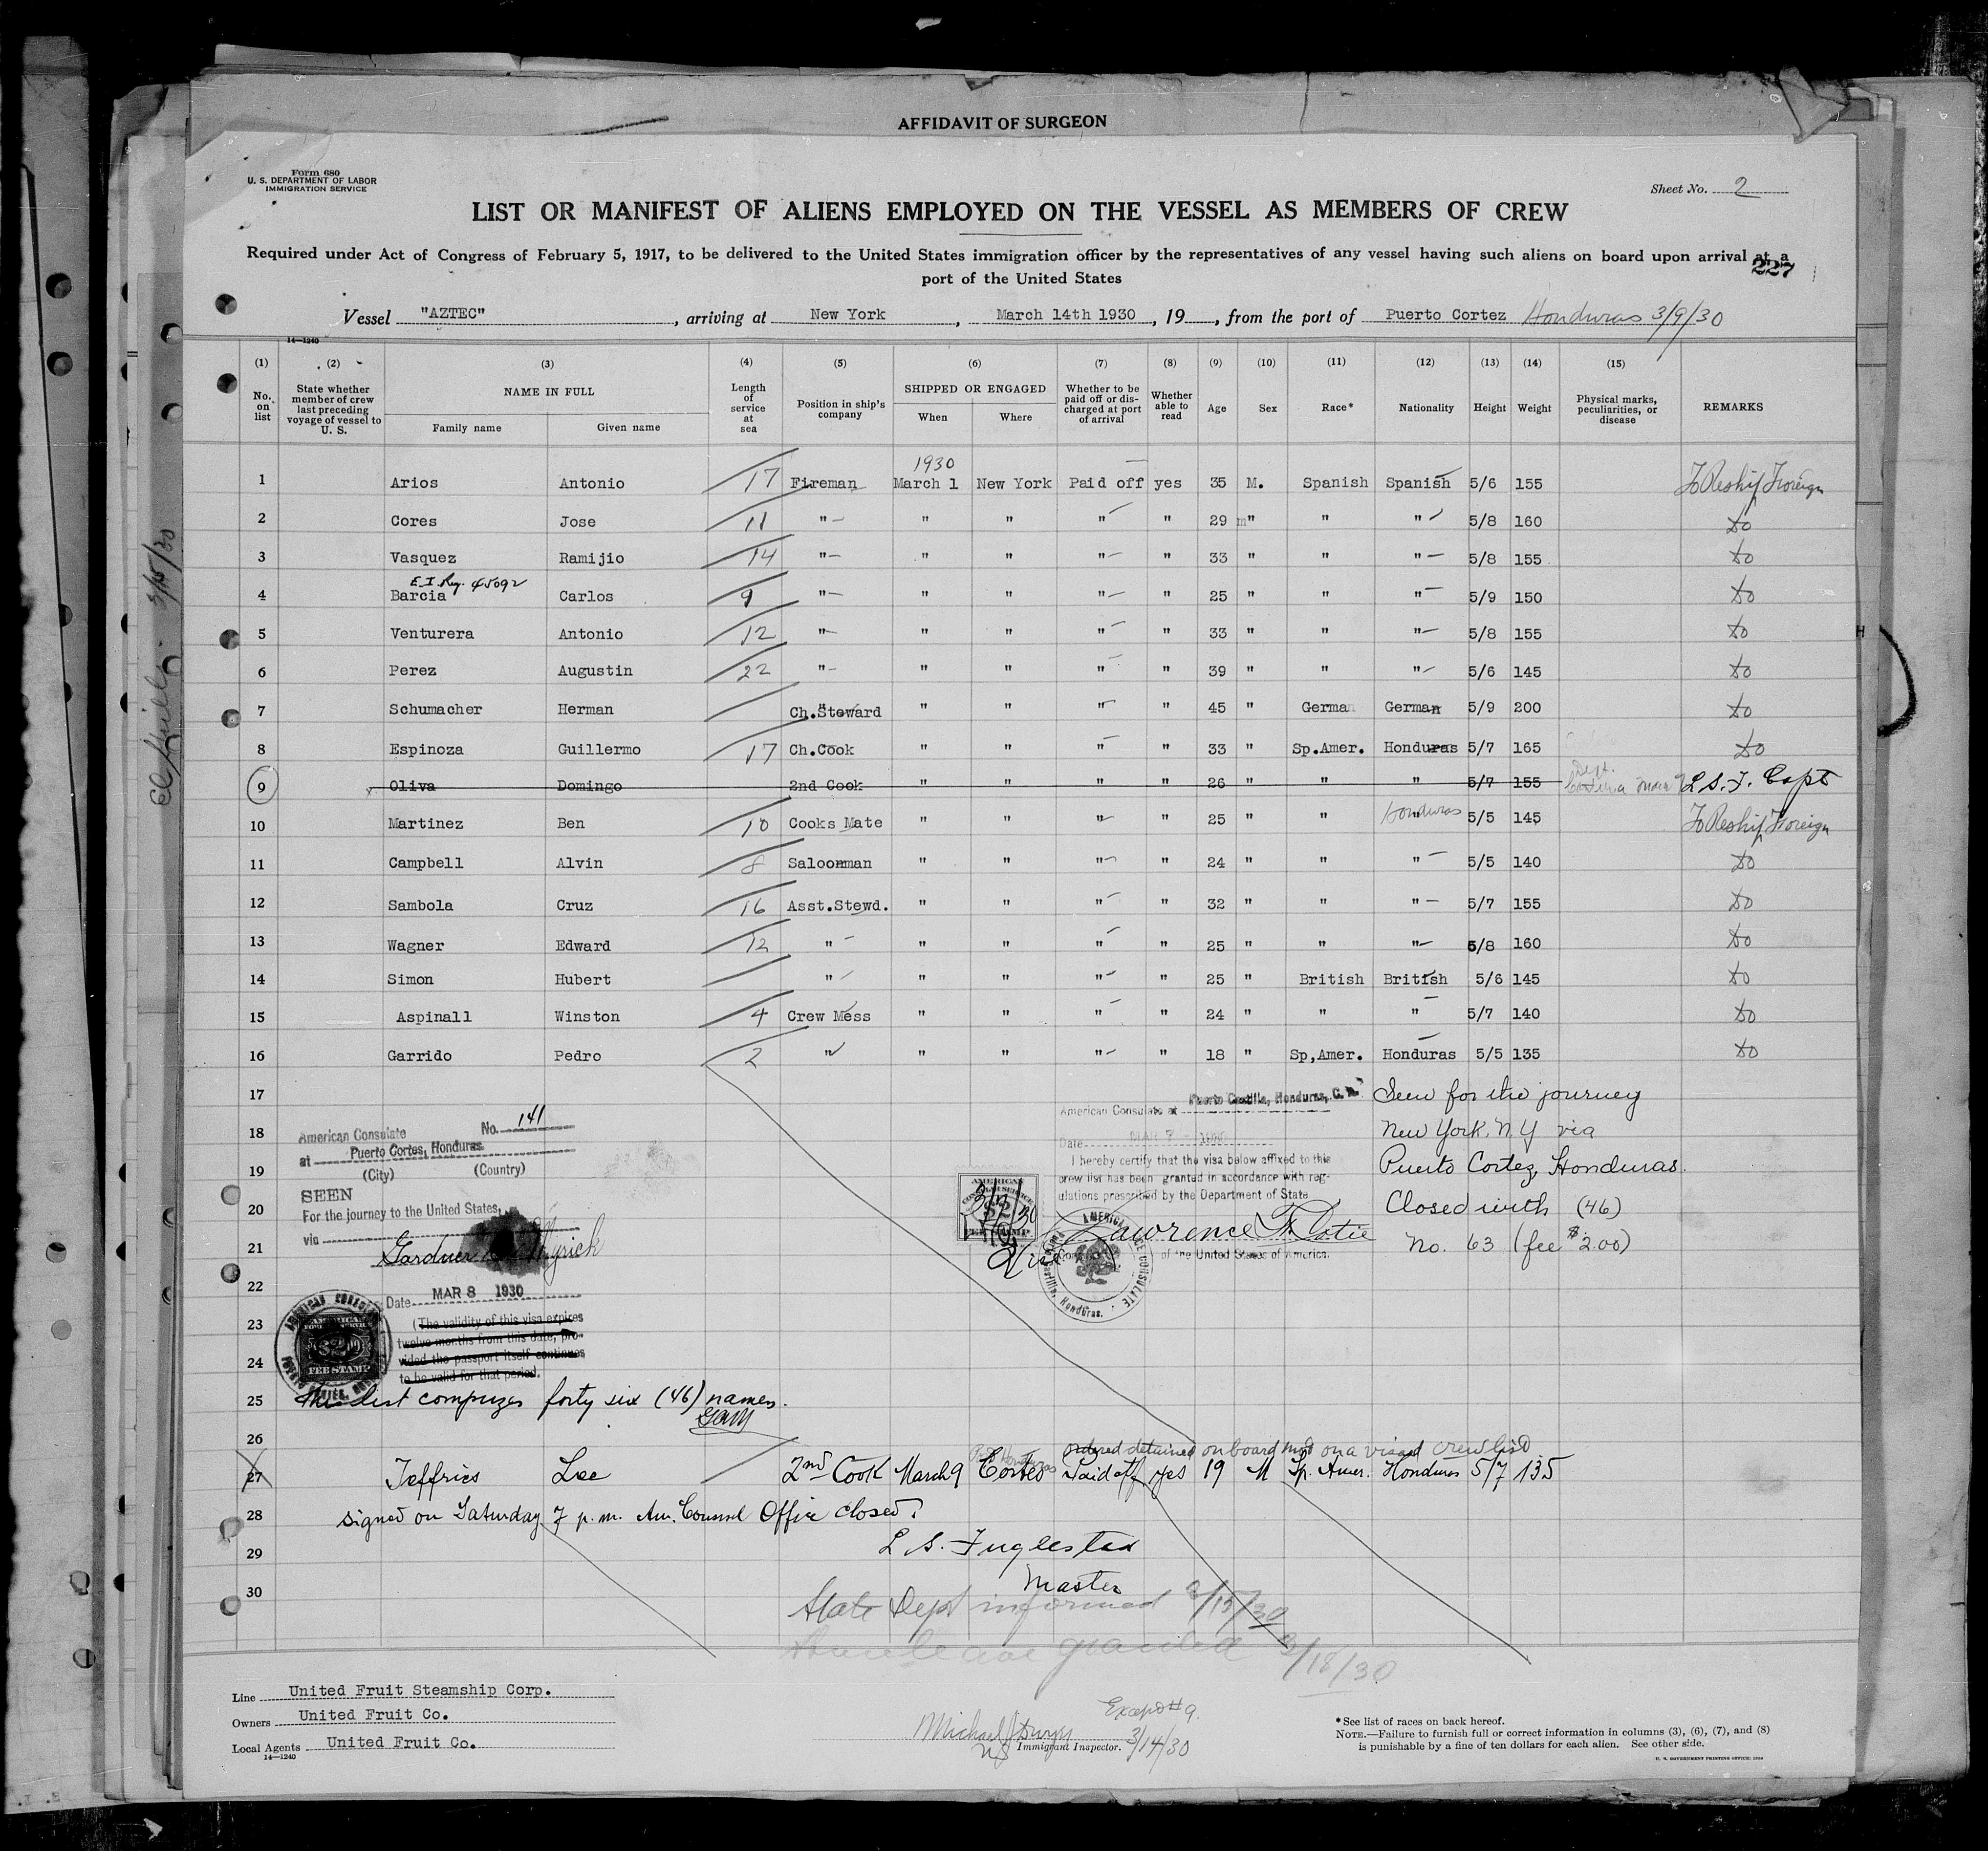 AFFIDAVIT OF SURGEON
Form 680
U. S. DEPARTMENT OF LABOR
IMMIGRATION SERVICE
Sheet No. 2
LIST OR MANIFEST OF ALIENS EMPLOYED ON THE VESSEL AS MEMBERS OF CREW
Required under Act of Congress of February 5, 1917, to be delivered to the United States immigration officer by the representatives of any vessel having such aliens on board upon arrival at a
port of the United States
227
Vessel "AZTEC", arriving at New York, March 14th 1930, 19, from the port of Puerto Cortez Honduras 3/9/30
14—1240
(1) (2) (3) (4) (5) (6) (7) (8) (9) (10) (11) (12) (13) (14) (15)
No. on list State whether member of crew last preceding voyage of vessel to U. S. NAME IN FULL Family name Given name Length of service at sea Position in ship's company SHIPPED OR ENGAGED When Where Whether to be paid off or discharged at port of arrival Whether able to read Age Sex Race* Nationality Height Weight Physical marks, peculiarities, or disease REMARKS
1930
1 Arios Antonio 17 Fireman March 1 New York Paid off yes 35 M. Spanish Spanish 5/6 155 To Reship Foreign
2 Cores Jose 11 " " " " " 29 m" " " 5/8 160 do
3 Vasquez Ramijio 14 " " " " " 33 " " " 5/8 155 do
E.I. Reg. 45092
4 Barcia Carlos 9 " " " " " 25 " " " 5/9 150 do
5 Venturera Antonio 12 " " " " " 33 " " " 5/8 155 do
6 Perez Augustin 22 " " " " " 39 " " " 5/6 145 do
7 Schumacher Herman Ch.Steward " " " " 45 " German German 5/9 200 do
8 Espinoza Guillermo 17 Ch.Cook " " " " 33 " Sp.Amer. Honduras 5/7 165 do
9 Oliva Domingo 2nd Cook " " " " 26 " " " 5/7 155 L.S.F. Capt
10 Martinez Ben 10 Cooks Mate " " " " 25 " " Honduras 5/5 145 To Reship Foreign
11 Campbell Alvin 8 Saloonman " " " " 24 " " " 5/5 140 do
12 Sambola Cruz 16 Asst.Stewd. " " " " 32 " " " 5/7 155 do
13 Wagner Edward 12 " " " " " 25 " " " 5/8 160 do
14 Simon Hubert " " " " " 25 " British British 5/6 145 do
15 Aspinall Winston 4 Crew Mess " " " " 24 " " " 5/7 140 do
16 Garrido Pedro 2 " " " " " 18 " Sp,Amer. Honduras 5/5 135 do
17
18
19
20
21
22
23
24
25
26
American Consulate No. 141
at Puerto Cortes, Honduras
(City) (Country)
SEEN
For the journey to the United States,
via
Gardner Myrick
Date MAR 8 1930
(The validity of this visa expires
twelve months from this date, pro-
vided the passport itself continues
to be valid for that period.
FEE STAMP
This list comprizes forty six (46) names.
American Consulate at Puerto Castilla, Honduras, C. A.
Date MAR 7 1930
I hereby certify that the visa below affixed to this
crew list has been granted in accordance with reg-
ulations prescribed by the Department of State
Lawrence F. Cotie
Vice Consul of the United States of America.
$2
FEE STAMP
Seen for the journey
New York, N.Y via
Puerto Cortez, Honduras.
Closed with (46)
No. 63 (fee $2.00)
ordered detained on board not on a visaed crew list
27 Jeffries Lee 2nd Cook March 9 Cortes Paid off yes 19 M Sp. Amer. Honduras 5/7 135
28 signed on Saturday 7 p.m. Am. Counsel Office closed.
29 L S. Fuglestad
Master
30 State Dept informed 3/15/30
granted 3/18/30
Line United Fruit Steamship Corp.
Owners United Fruit Co.
Local Agents United Fruit Co.
14—1240
Except #9.
Immigrant Inspector. 3/14/30
* See list of races on back hereof.
NOTE.—Failure to furnish full or correct information in columns (3), (6), (7), and (8)
is punishable by a fine of ten dollars for each alien. See other side.